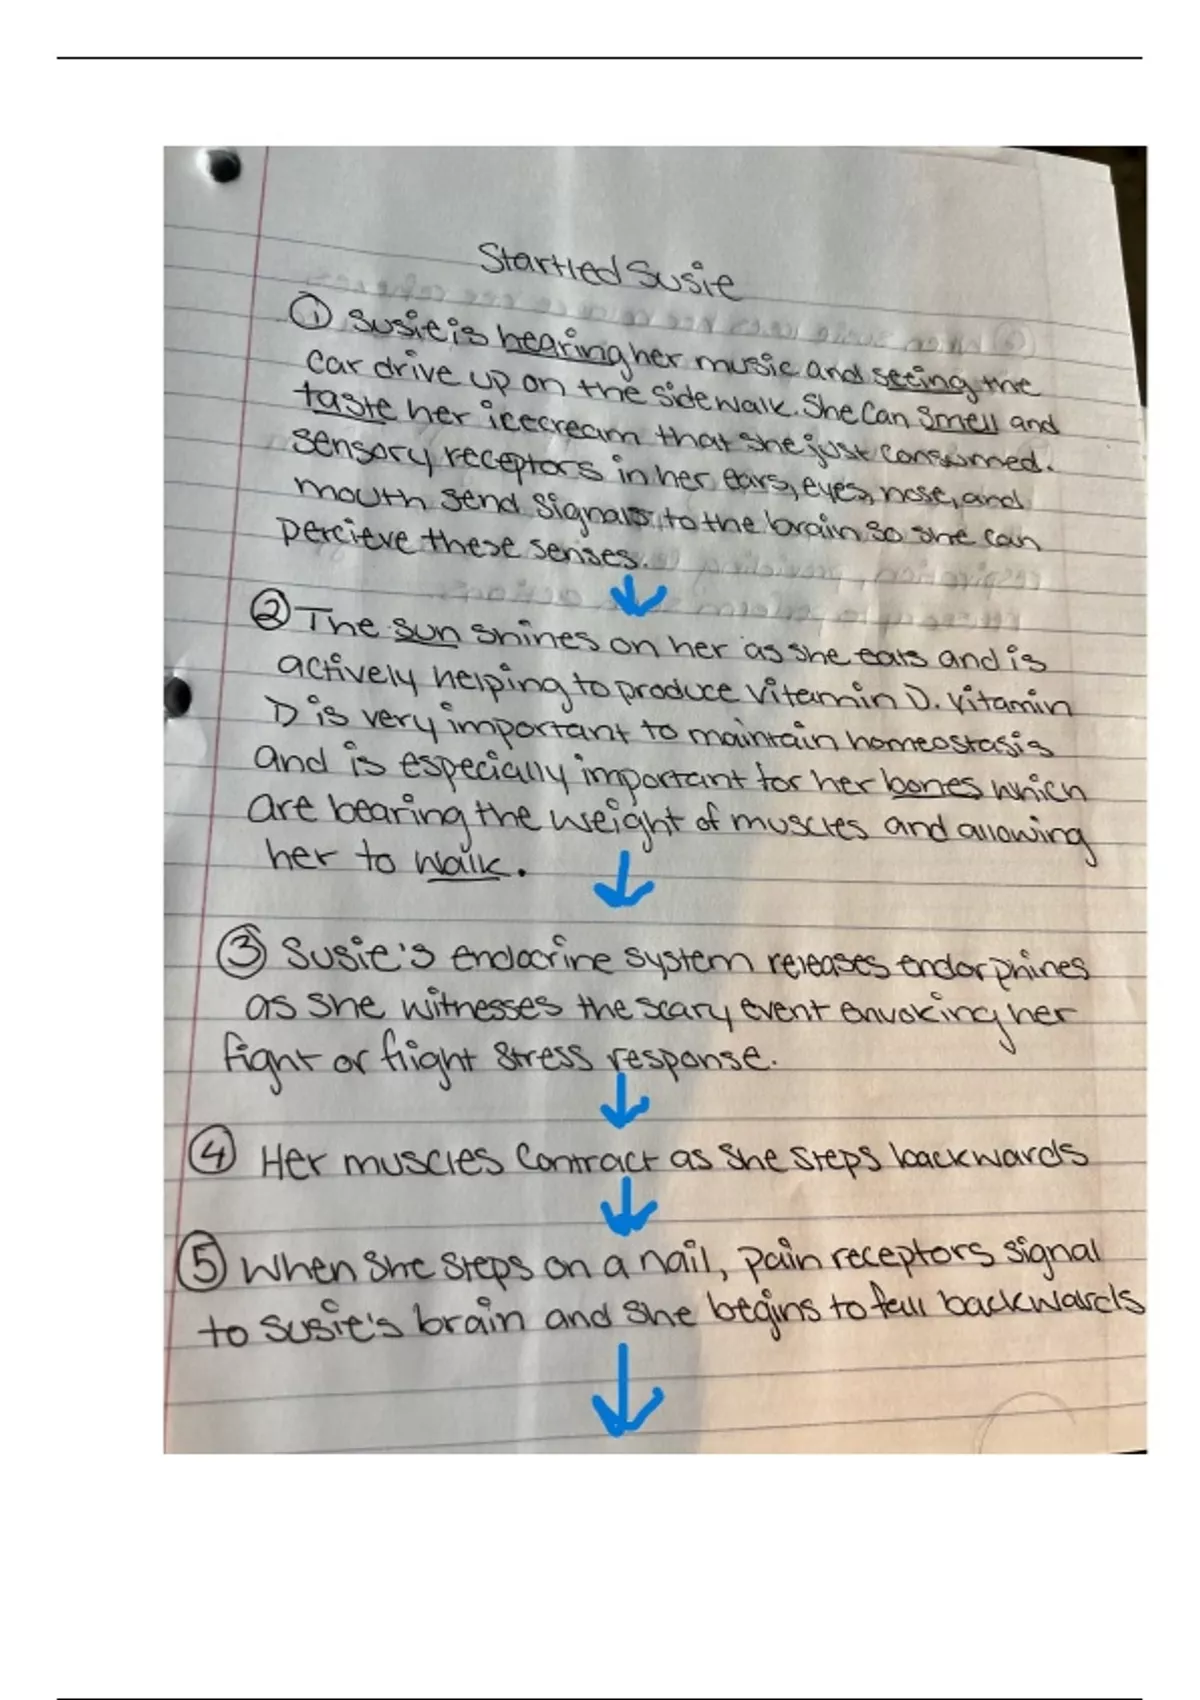 Startled Susie
① Susie is hearing her music and seeing the
car drive up on the sidewalk. She can smell and
taste her icecream that she just consumed.
sensory receptors in her ears, eyes, nose, and
mouth send signals to the brain so she can
percieve these senses.
② The sun shines on her as she eats and is
actively helping to produce vitamin D. Vitamin
D is very important to maintain homeostasis
and is especially important for her bones which
are bearing the weight of muscles and allowing
her to walk.
③ Susie's endocrine system releases endorphines
as she witnesses the scary event envoking her
fight or flight stress response.
④ Her muscles contract as she steps backwards
⑤ When she steps on a nail, pain receptors signal
to Susie's brain and she begins to fall backwards